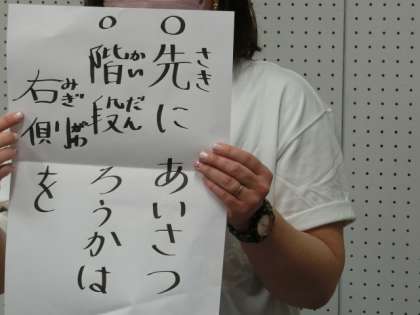 ○先にあいさつ
○階段ろうかは
右側を
さき
かいだん
みぎがわ